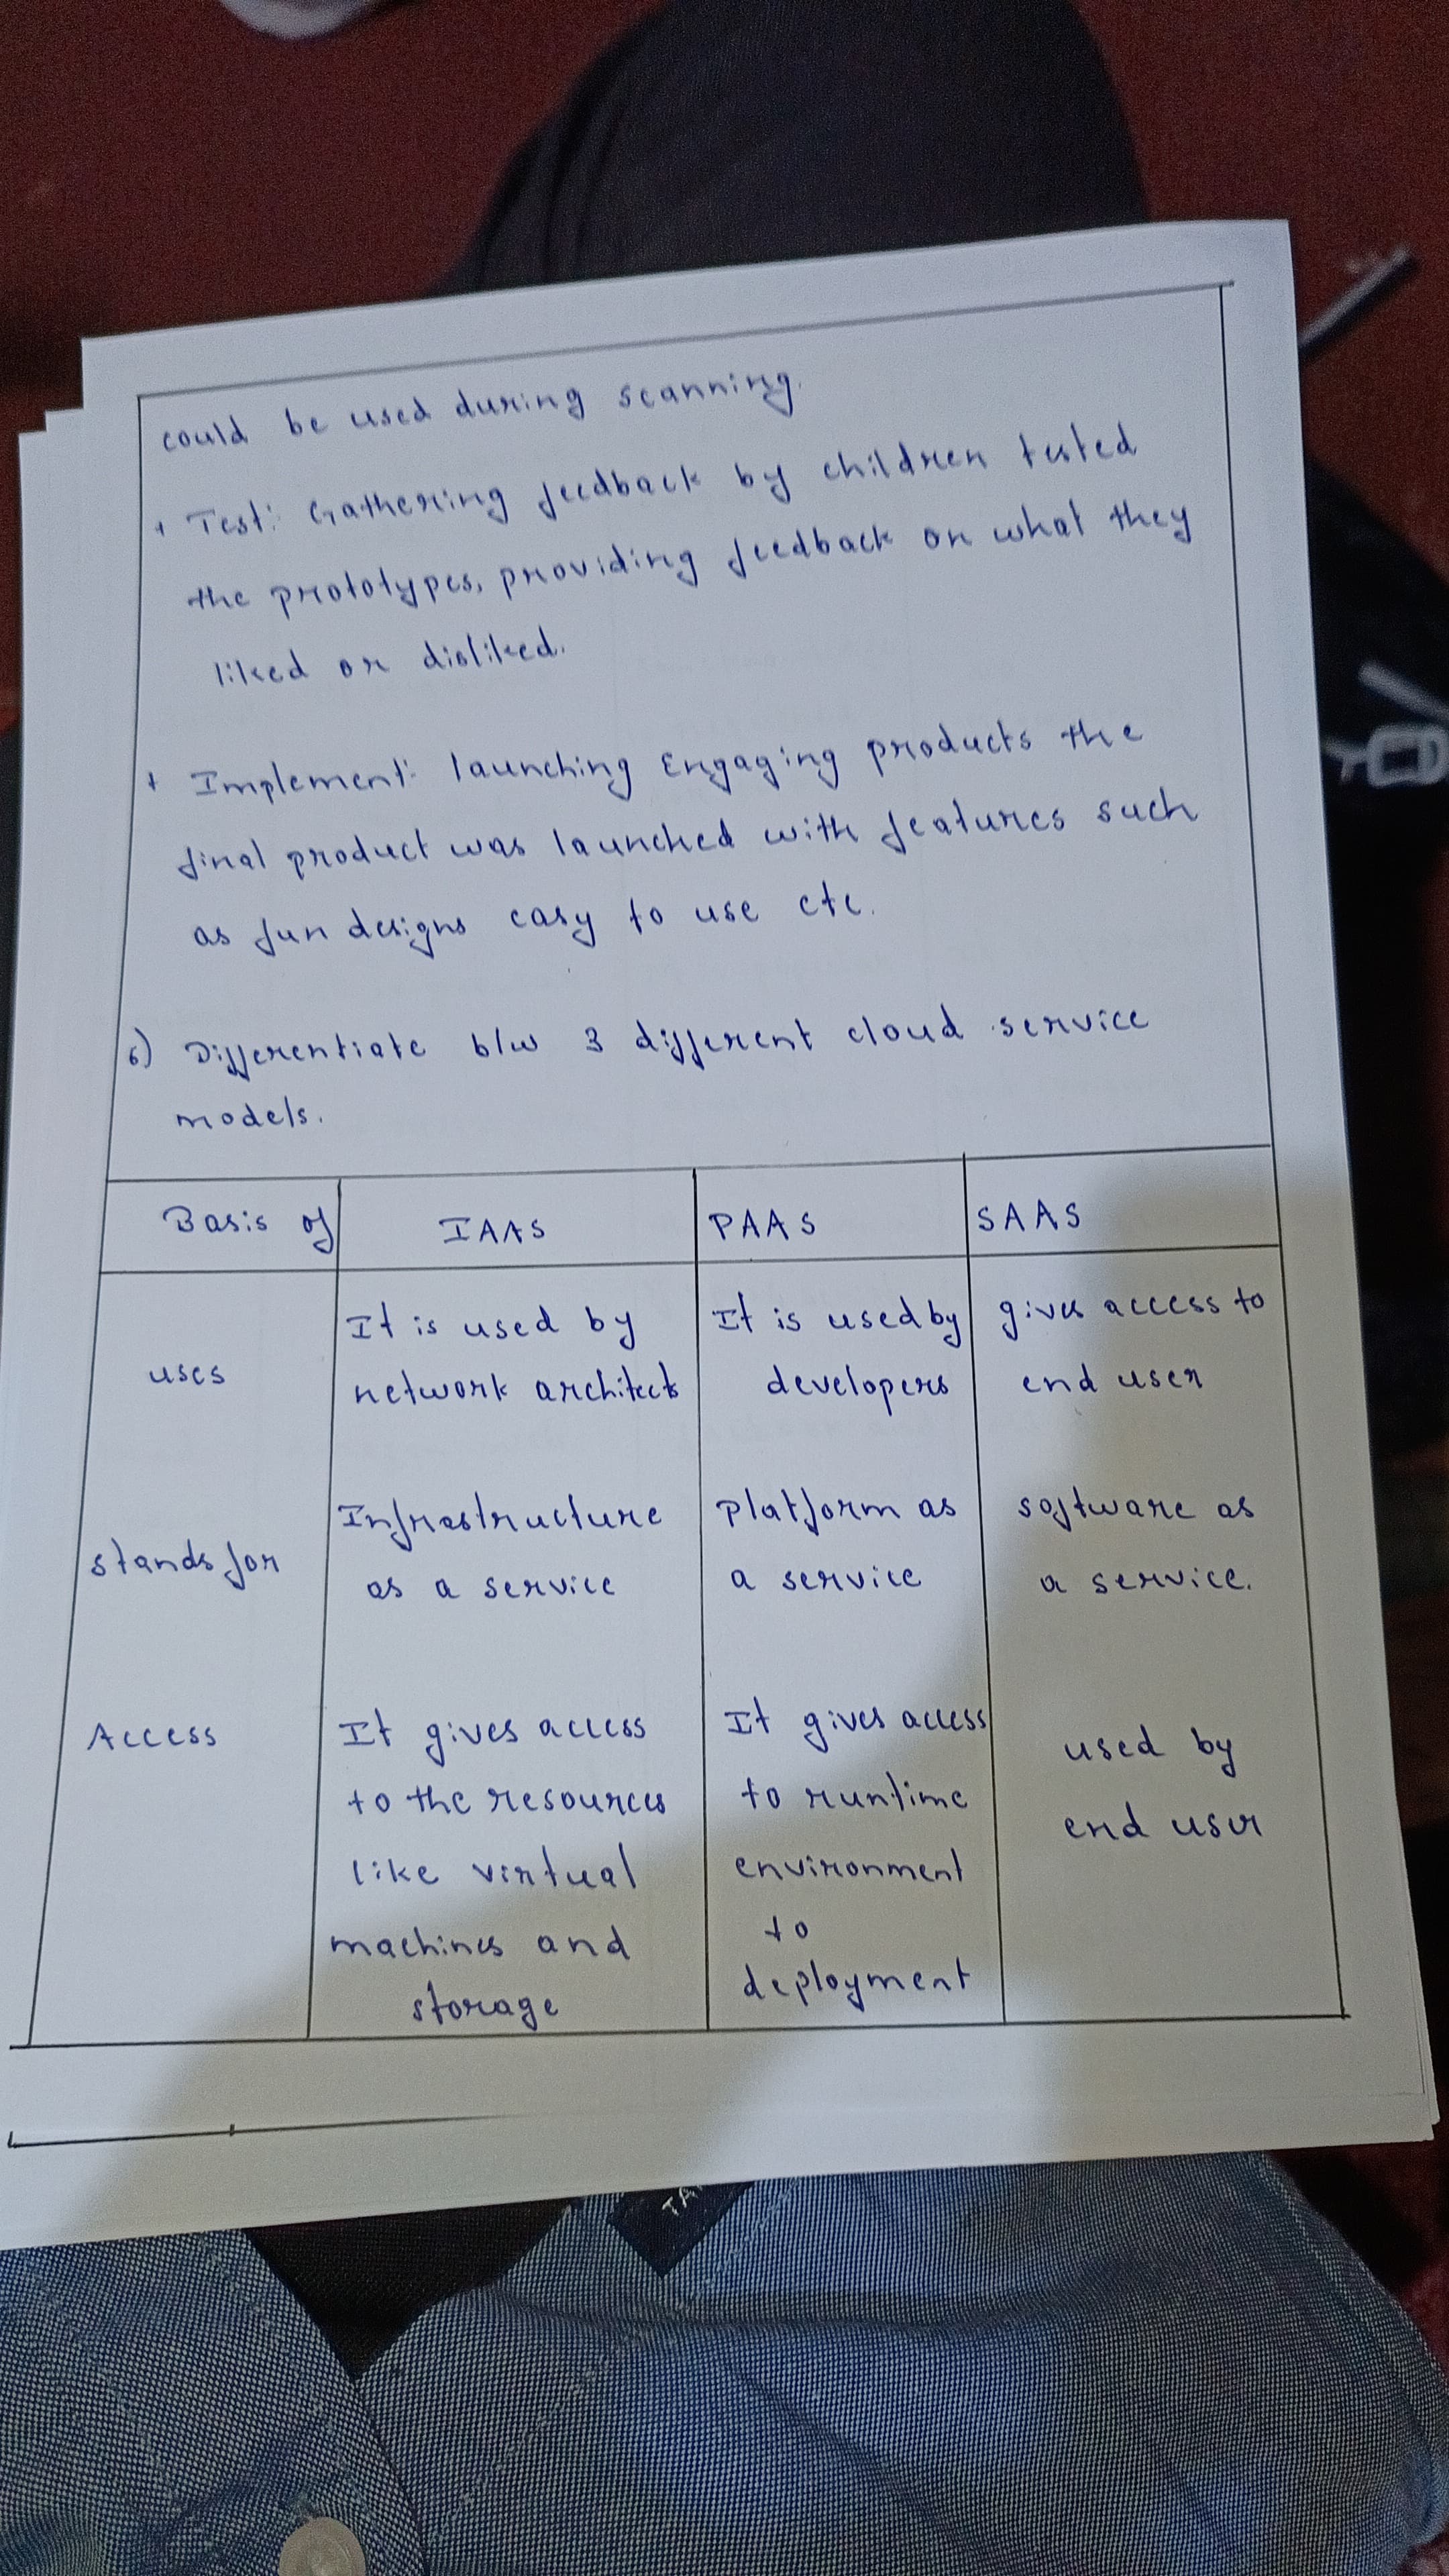 could be used during scanning.
+ Test: Gathering feedback by children tested
the prototypes, providing feedback on what they
liked or disliked.
+ Implement: launching Engaging products the
final product was launched with features such
as fun designs easy to use etc.
6) Differentiate b/w 3 different cloud service
models.
Basis of IAAS PAAS SAAS
uses
It is used by
network architects
It is used by
developers
gives access to
end user
stands for
Infrastructure
as a service
Platform as
a service
software as
a service.
Access
It gives access
to the resources
like virtual
machines and
storage
It gives access
to runtime
environment
to
deployment
used by
end user